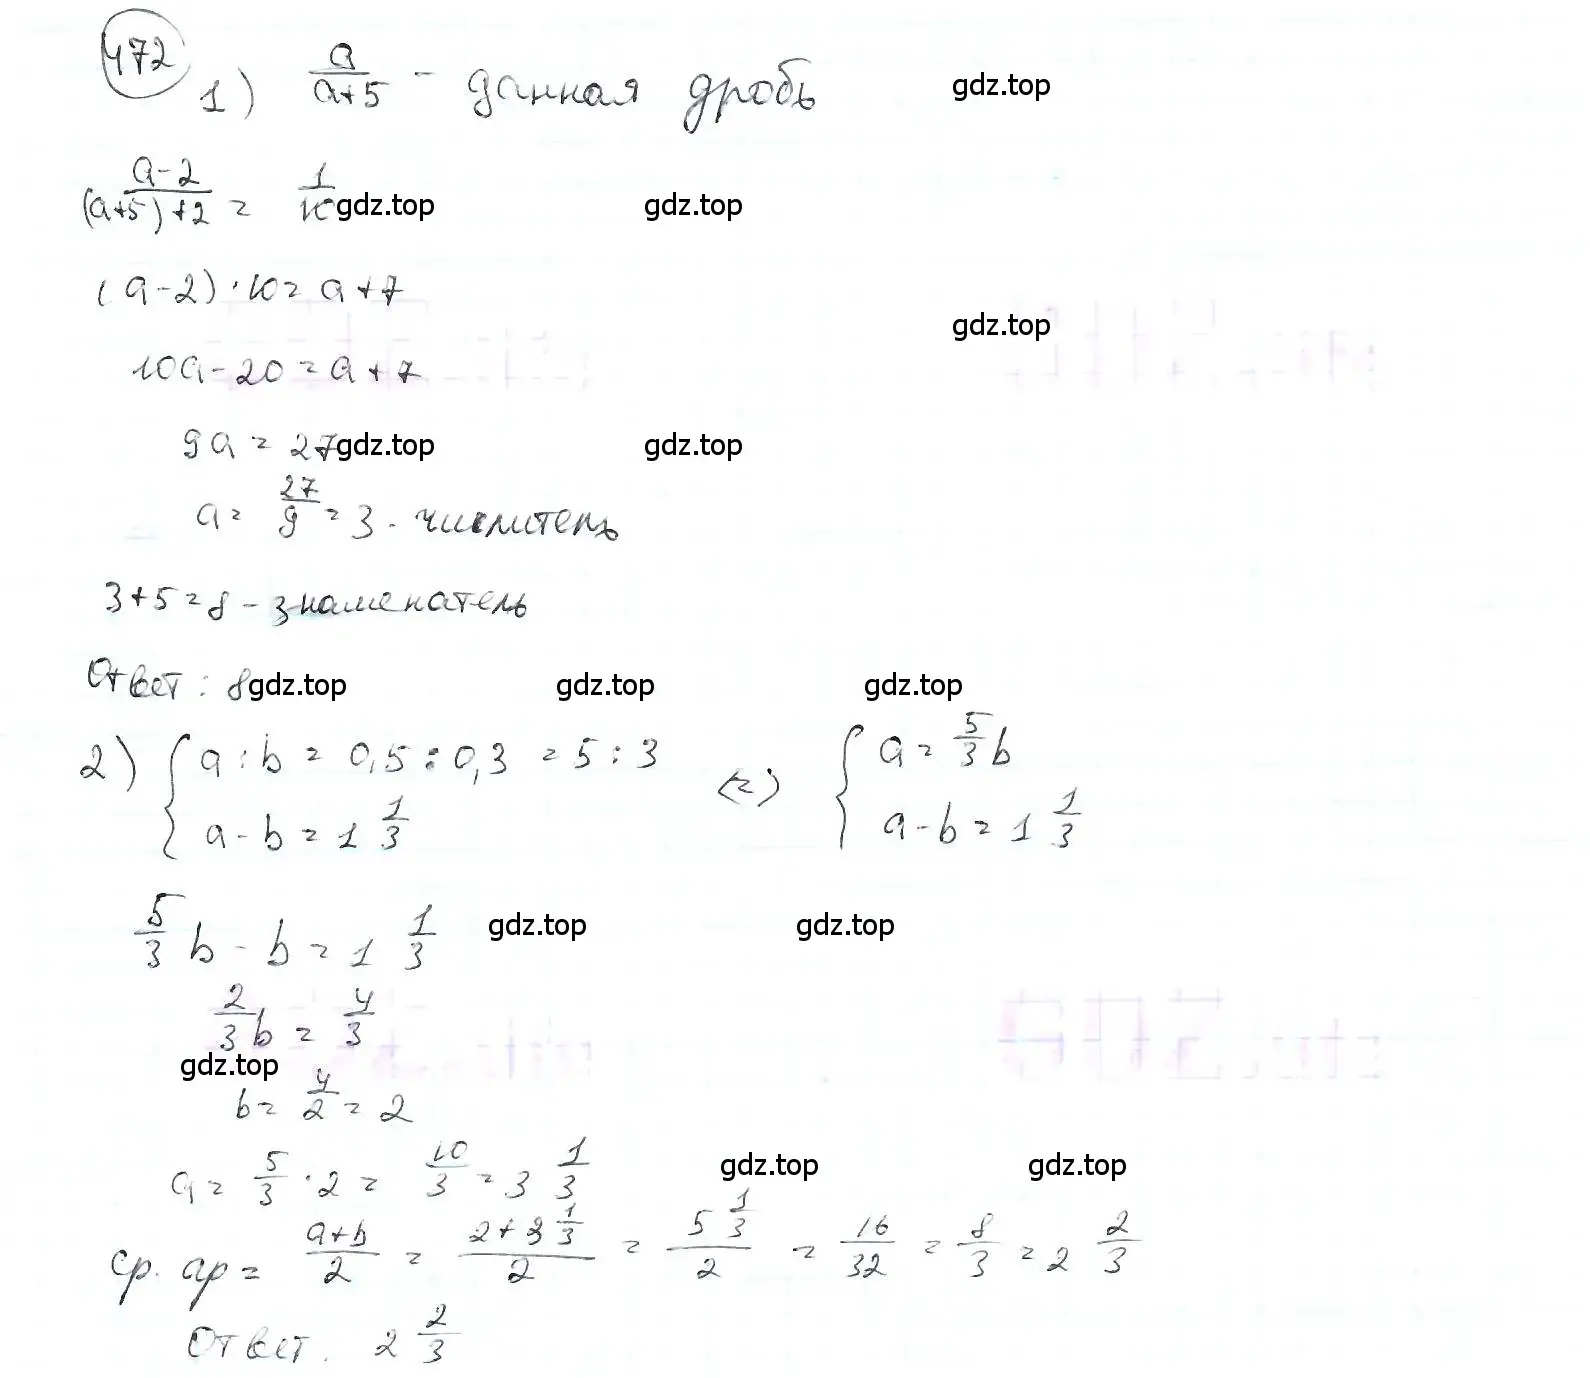 472
1) a/(a+5) - данная дробь gdz.top
(a-2)/((a+5)+2) = 1/10 gdz.top gdz.top
(a-2)·10=a+7
gdz.top
10a-20=a+7
9a=27 gdz.top gdz.top
a=27/9=3 - числитель
3+5=8 - знаменатель
Ответ: 8 gdz.top gdz.top gdz.top
2) { a:b=0,5:0,3=5:3 <=> { a=5/3 b
a-b=1 1/3 a-b=1 1/3
5/3 b - b = 1 1/3 gdz.top gdz.top
2/3 b = 4/3
gdz.top
b=4/2=2
a=5/3·2=10/3=3 1/3 gdz.top gdz.top
ср. ар=(a+b)/2=(2+3 1/3)/2=(5 1/3)/2=16/32=8/3=2 2/3
Ответ. 2 2/3